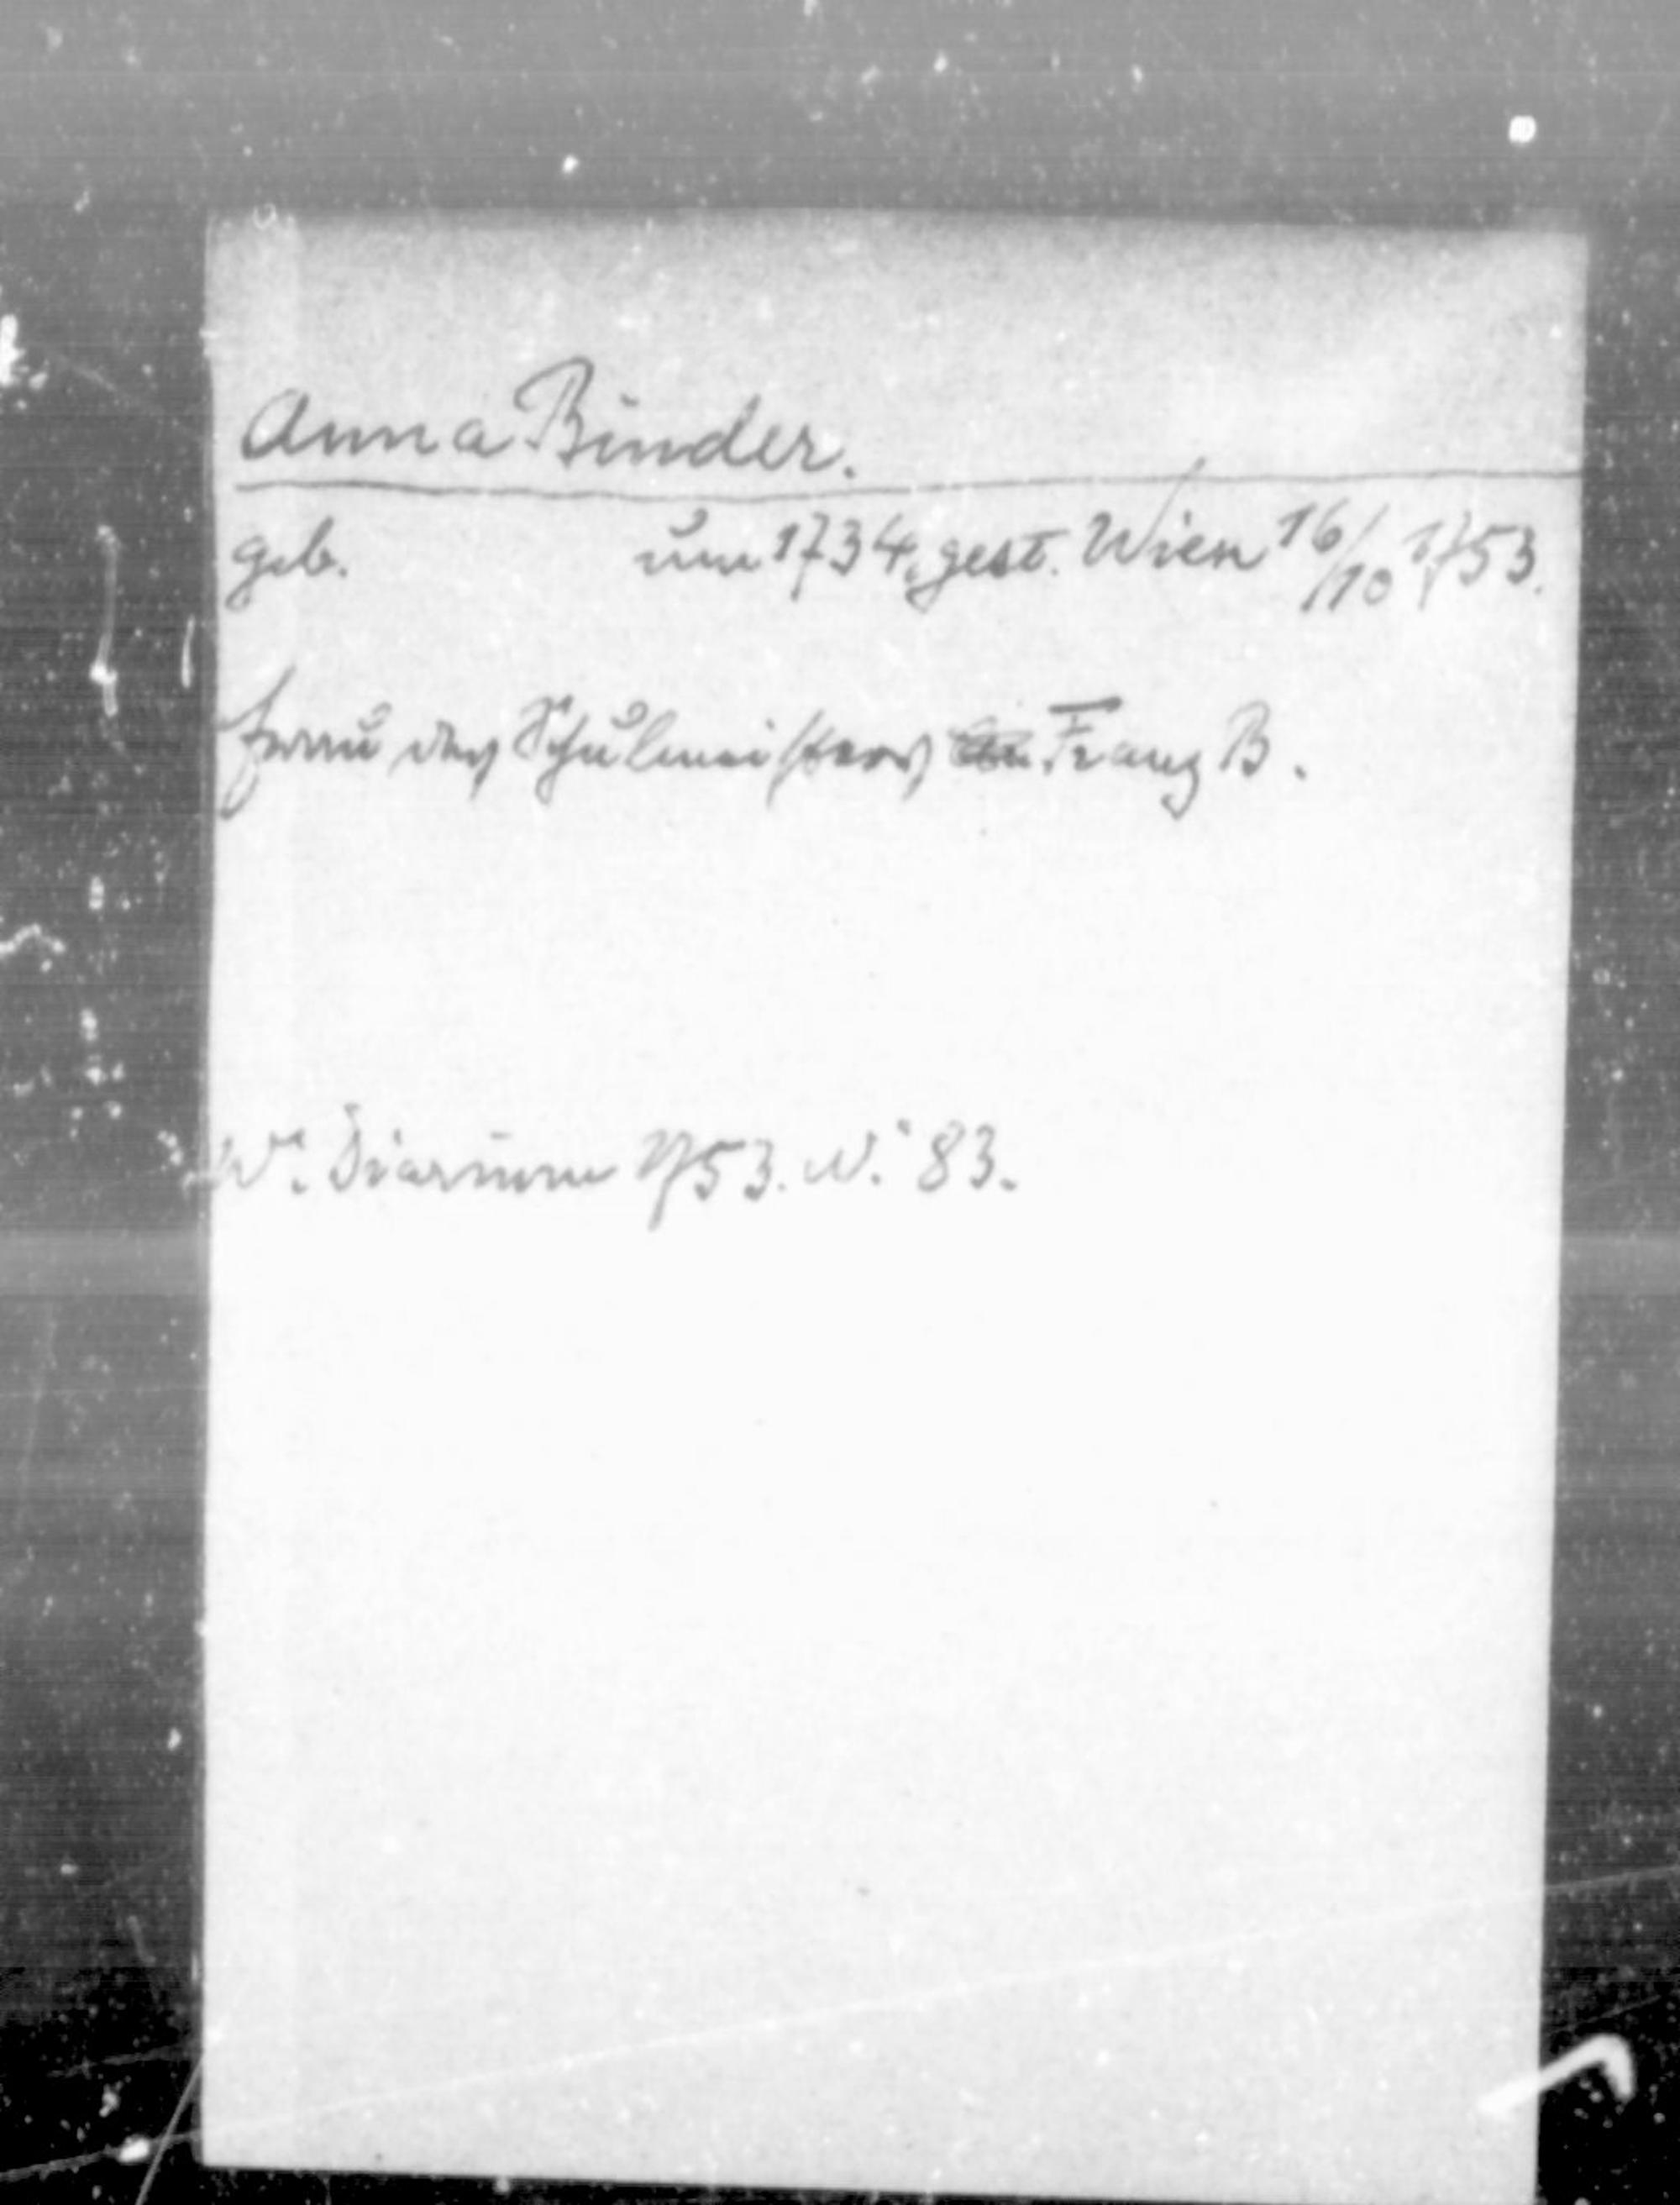 Anna Binder.
geb. um 1734, gest. Wien 16/10 1753.
Frau des Schulmeisters Franz B.
Wr. Diarium 1753. Nr. 83.